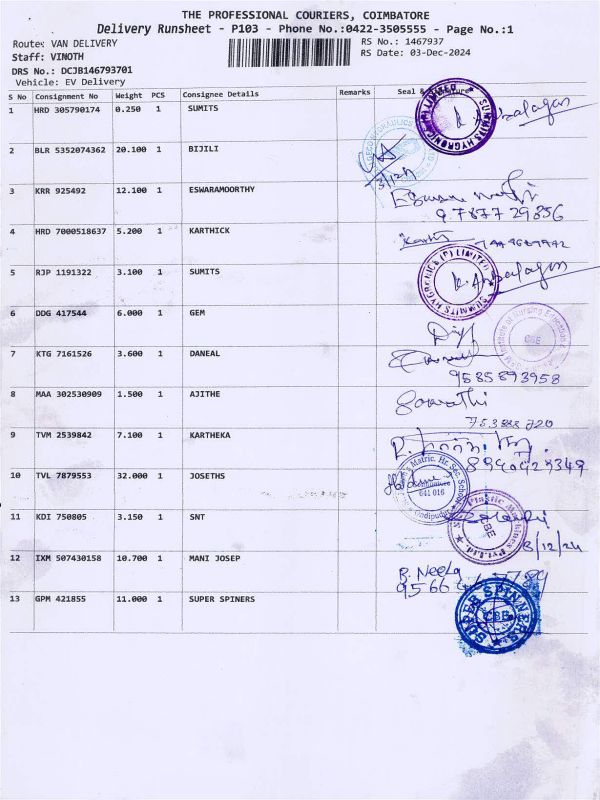 THE PROFESSIONAL COURIERS, COIMBATORE
Delivery Runsheet - P103 - Phone No.:0422-3505555 - Page No.:1
Route: VAN DELIVERY
RS No.: 1467937
Staff: VINOTH
RS Date: 03-Dec-2024
DRS No.: DCJB146793701
Vehicle: EV Delivery
S No Consignment No Weight PCS Consignee Details Remarks Seal & Signature
1 HRD 305790174 0.250 1 SUMITS
SUMMITS HYGRONICS (P) LIMITED
2 BLR 5352074362 20.100 1 BIJILI
3/12/24
3 KRR 925492 12.100 1 ESWARAMOORTHY
9.7877 29356
4 HRD 7000518637 5.200 1 KARTHICK
5 RJP 1191322 3.100 1 SUMITS
SUMMITS HYGRONICS (P) LIMITED
6 DDG 417544 6.000 1 GEM
Institute of Nursing Education
CBE
7 KTG 7161526 3.600 1 DANEAL
9585893958
8 MAA 302530909 1.500 1 AJITHE
9 TVM 2539842 7.100 1 KARTHEKA
10 TVL 7879553 32.000 1 JOSETHS
Matric. Hr. Sec. School
641 016
11 KDI 750805 3.150 1 SNT
Plastic Machines Pvt. Ltd.
CBE
3/12/24
12 IXM 507430158 10.700 1 MANI JOSEP
B. Neela
13 GPM 421855 11.000 1 SUPER SPINERS
SUPER SPINNERS
CBE